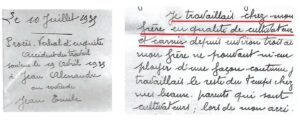 Le 10 Juillet 1939
Procès Verbal d'enquête
Accident du travail
survenu le 19 Avril 1939
à Jean Alexandre
au
Jean Emile
Je travaillais chez mon
frère en qualité de cultivateur
et carrier depuis environ trois ans
mon frère ne pouvant m'em
ployer d'une façon continue
travaillais le reste du temps chez
mes beaux parents qui sont
cultivateurs ; lors de mon acci